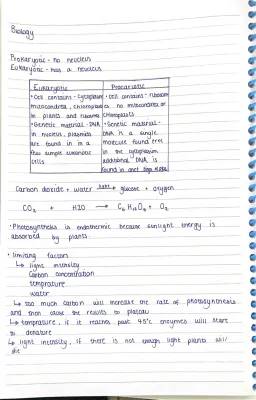 Biology
Prokaryotic - no nucleus
Eukaryotic - has a nucleus
Eukaryotic
• Cell contains - cytoplasm
mitocondria, chloroplasts
in plants and ribosomes
• Genetic material - DNA
in nucleus, plasmids
are found in in a
few simple eukaryotic
cells
Procariotic
• Cell contains - ribosomes
no mitocondria or
chloroplasts
• Genetic material -
DNA is a single
molecule found free
in the cytoplasm
additional DNA is
found in one
rings
Carbon dioxide + water light→ glucose + oxygen
CO2 + H2O → C6H12O6 + O2
• Photosynthesis is endothermic because sunlight energy is
absorbed by plants
• limiting factors
↳ light intensity
Carbon concentration
temprature
water
↳ too much carbon will increase the rate of photosynthesis
and then cause the results to plateau
↳ temprature, if it reaches past 45°c enzymes will start
to denature
↳ light intensity, if there is not enough light plants will
die